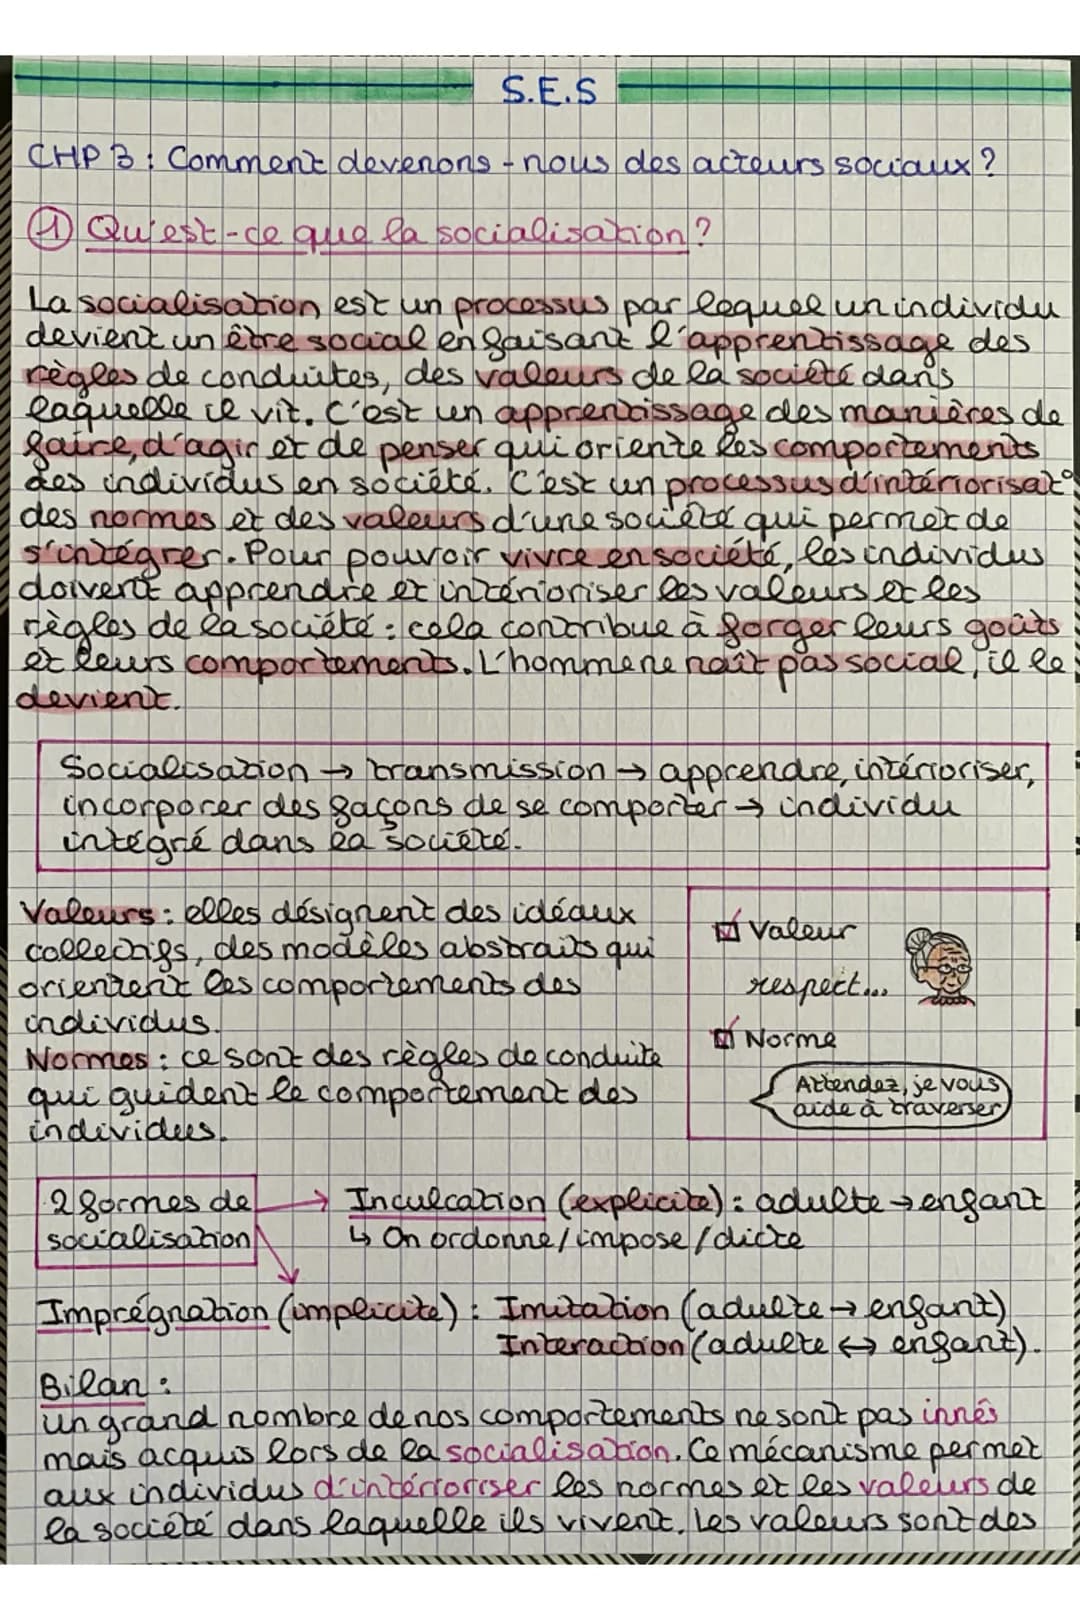 S.E.S
CHP 3 : Comment devenons-nous des acteurs sociaux ?
① Qu'est-ce que la socialisation ?
La socialisation est un processus par lequel un individu
devient un être social en faisant l'apprentissage des
règles de conduites, des valeurs de la société dans
laquelle il vit. C'est un apprentissage des manières de
faire, d'agir et de penser qui oriente les comportements
des individus en société. C'est un processus d'intériorisat°
des normes et des valeurs d'une société qui permet de
s'intégrer. Pour pouvoir vivre en société, les individus
doivent apprendre et intérioriser les valeurs et les
règles de la société : cela contribue à forger leurs goûts
et leurs comportements. L'homme ne naît pas social, il le
devient.
Socialisation → transmission → apprendre, intérioriser,
incorporer des façons de se comporter → individu
intégré dans la société.
Valeurs : elles désignent des idéaux
collectifs, des modèles abstraits qui
orientent les comportements des
individus.
Normes : ce sont des règles de conduite
qui guident le comportement des
individus.
☑ Valeur
respect...
☑ Norme
Attendez, je vous
aide à traverser
2 formes de
socialisation
→ Inculcation (explicite) : adulte → enfant
↳ On ordonne / impose / dicte
Imprégnation (implicite) : Imitation (adulte → enfant)
Interaction (adulte ↔ enfant).
Bilan :
un grand nombre de nos comportements ne sont pas innés
mais acquis lors de la socialisation. Ce mécanisme permet
aux individus d'intérioriser les normes et les valeurs de
la société dans laquelle ils vivent. Les valeurs sont des